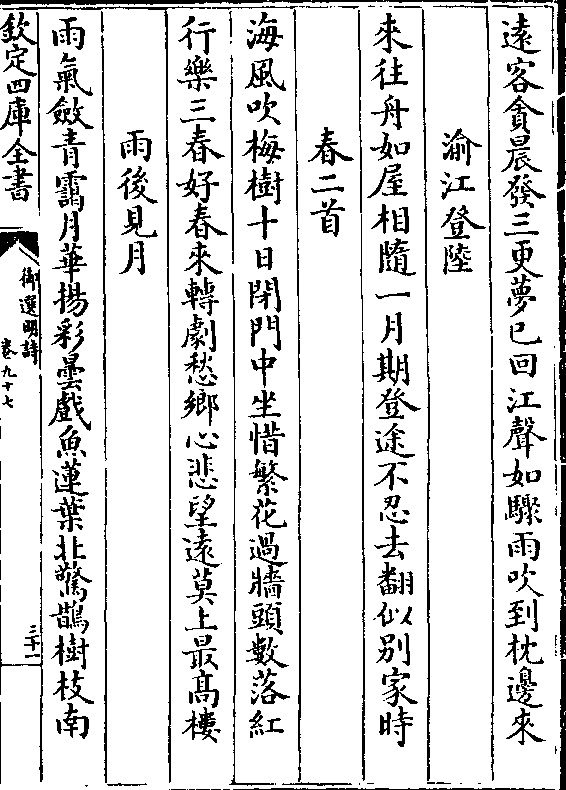 遠客貪晨發三更夢已回江聲如驟雨吹到枕邊來
渝江登陸
來往舟如屋相隨一月期登途不忍去翻似别家時
春二首
海風吹梅樹十日閉門中坐惜繁花過牆頭數落紅
行樂三春好春來轉劇愁鄉心悲望遠莫上最髙樓
雨後見月
雨氣斂青靄月華揚彩曇戲魚蓮葉北驚鵲樹枝南
欽定四庫全書
御選明詩
卷九十七
三十一